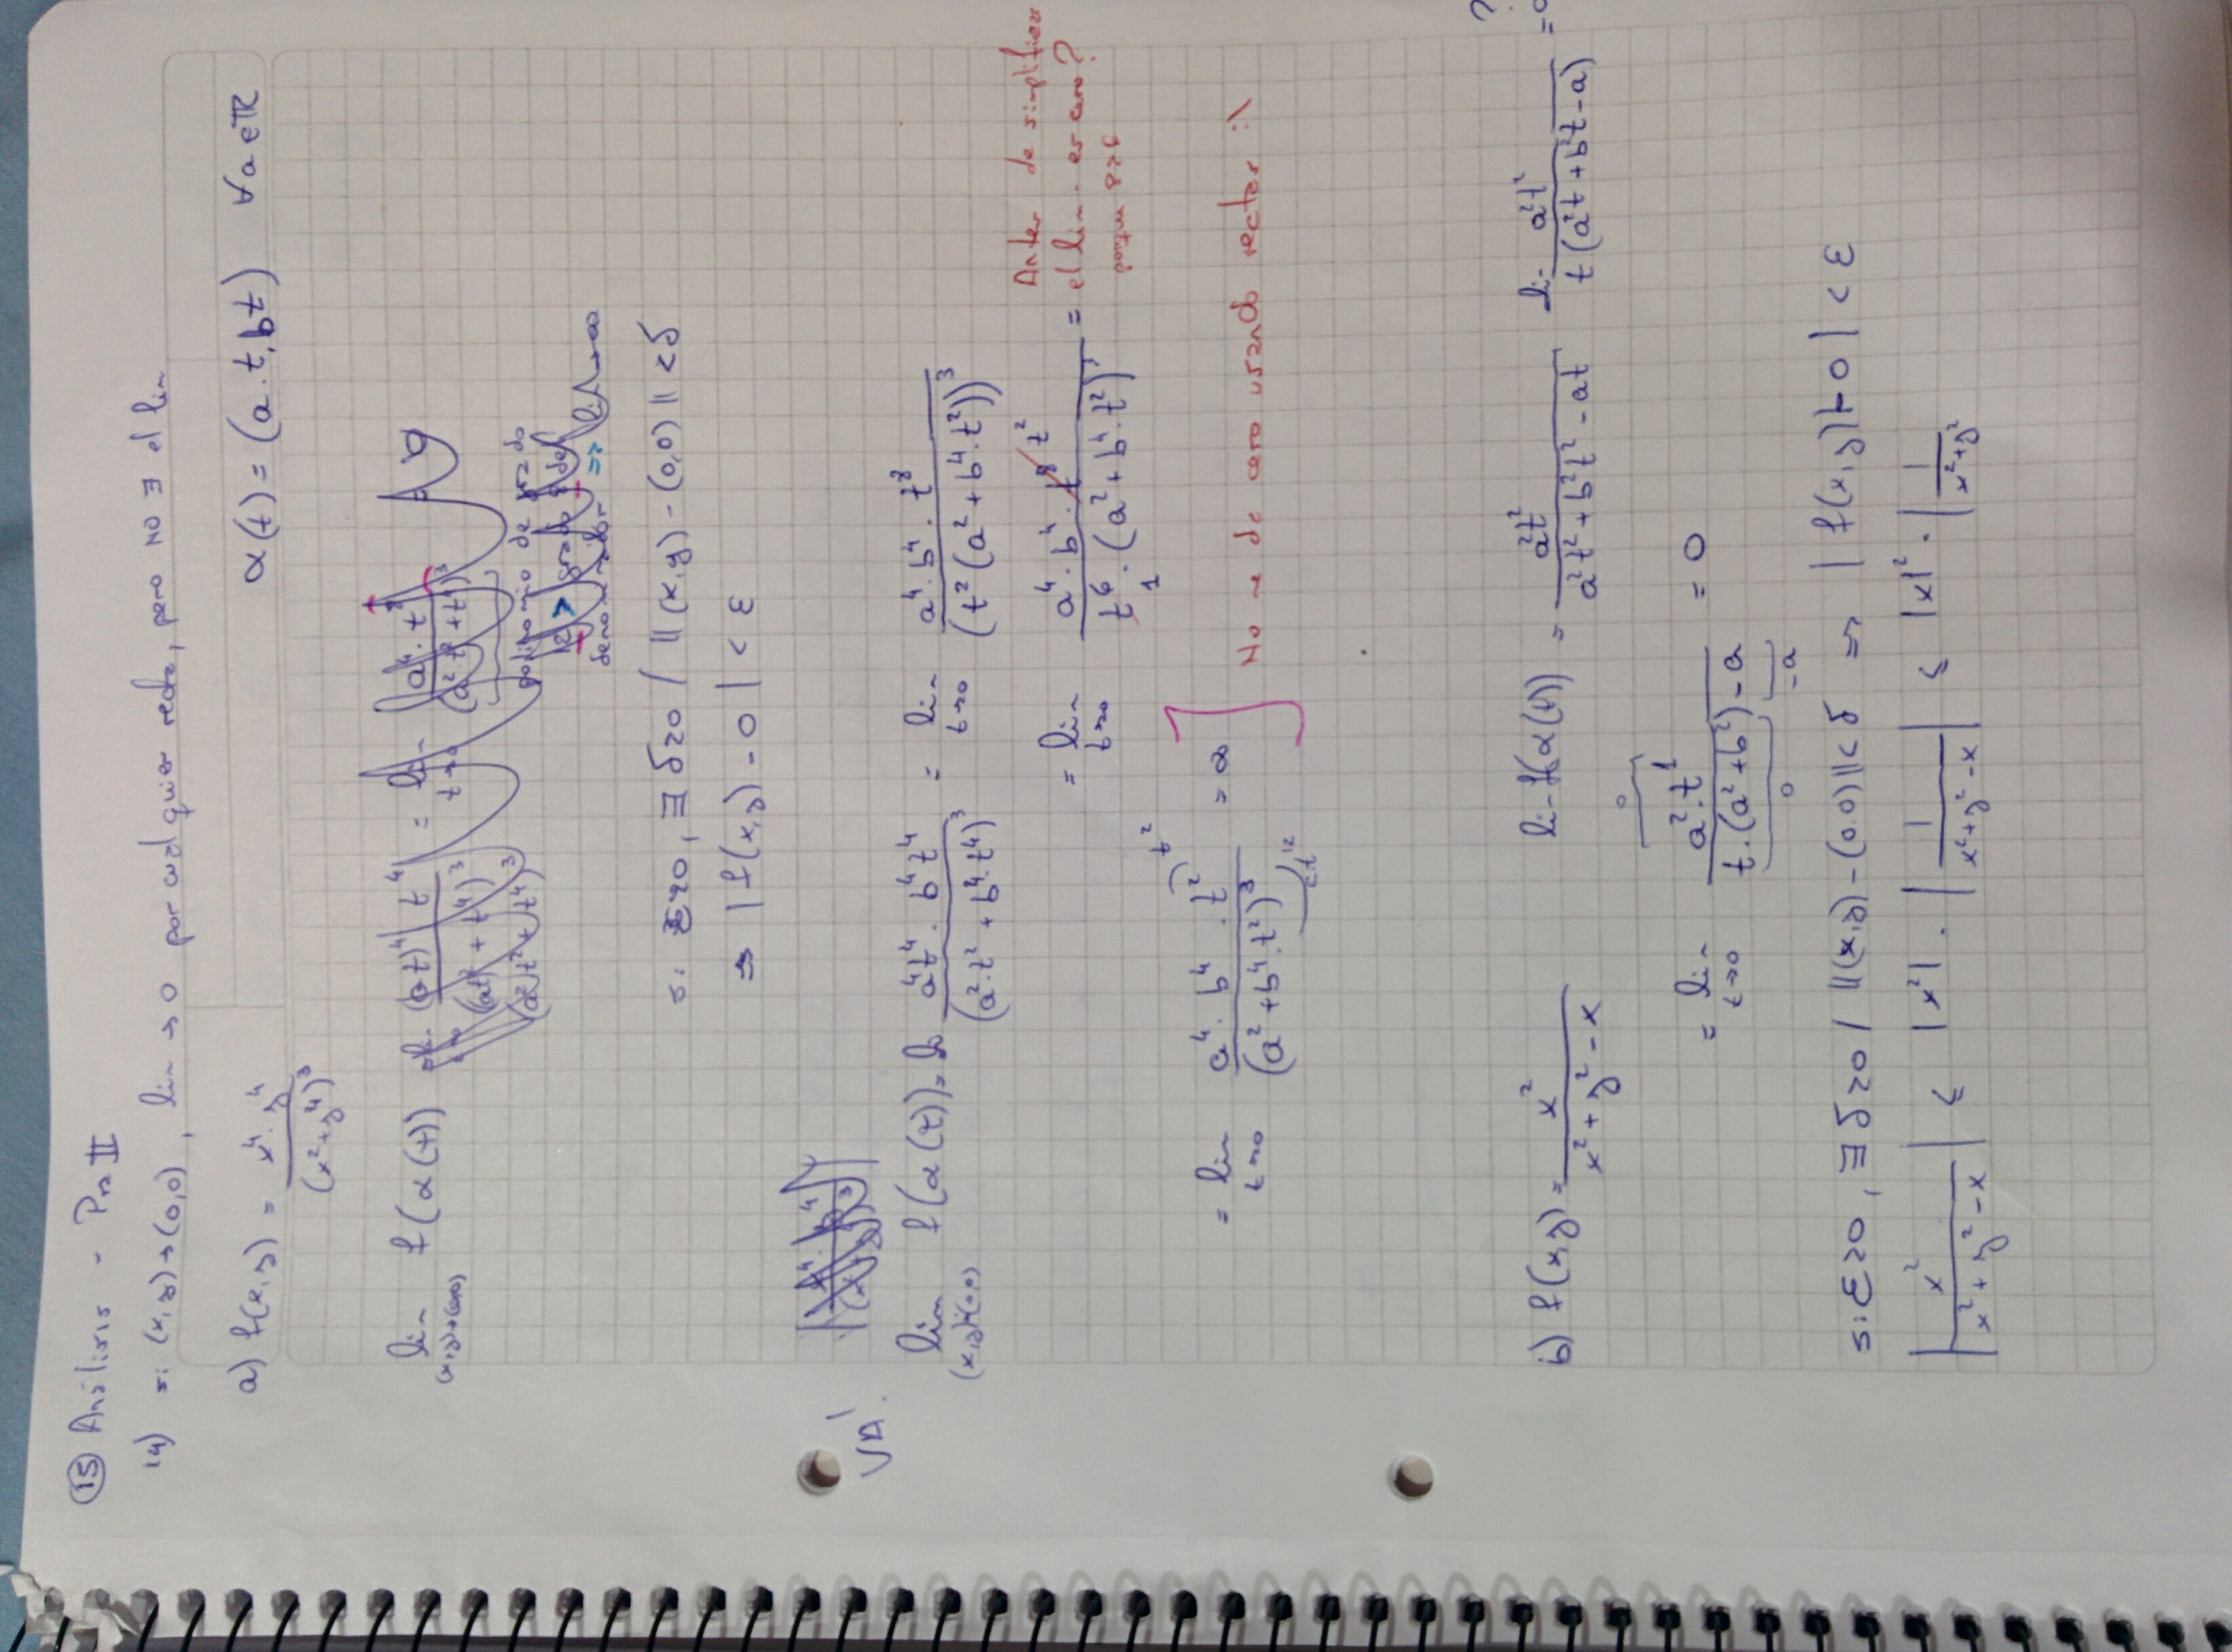 15 Análisis - Pra II
14) si (x,y)→(0,0), lim → 0 por cualquier recta, pero NO ∃ el lim
a) f(x,y) = x⁴·y⁴ / (x²+y⁴)³ α(t) = (a.t, bt) ∀a∈ℝ
lim (x,y)→(0,0) f(α(t)) (at)⁴ t⁴ / (at)² + t⁴)³ = lim t→0 a⁴·t⁸ / (a²t²+t⁴)³
(a²t² + t⁴)³
polinomio de grado
12 > grado 8 del
denominador ⇒ lim→∞
si ε>0, ∃ δ>0 / ||(x,y) - (0,0)|| < δ
⇒ |f(x,y) - 0| < ε
VA!
lim (x,y)→(0,0) f(α(t)) = a⁴t⁴ · b⁴t⁴ / (a²·t² + b⁴·t⁴)³ = lim t→0 a⁴·b⁴·t⁸ / (t²(a²+b⁴·t²))³
= lim t→0 a⁴·b⁴·t⁸ t² / t⁶·(a²+b⁴·t²)³ = Antes de simplificar
1 el lim. es cero?
porque 8>6
= lim t→0 a⁴·b⁴·t² / (a²+b⁴·t²)³ = ∞ t² t¹² No me da cero usando rectas :\
b) f(x,y) = x² / x²+y²-x lim f(α(t)) = a²t² / a²t²+b²t²-at lim a²t² / t(a²t+b²t-a) = ?
= lim t→0 a²·t¹ / t.(a²+b²)-a = 0
0 0 -a
si ε>0, ∃ δ>0 / ||(x,y)-(0,0)|| < δ ⇒ |f(x,y)-0| < ε
|x² / x²+y²-x| ≤ |x²| · |1 / x²+y²-x| ≤ |x|² · |1 / x²+y²